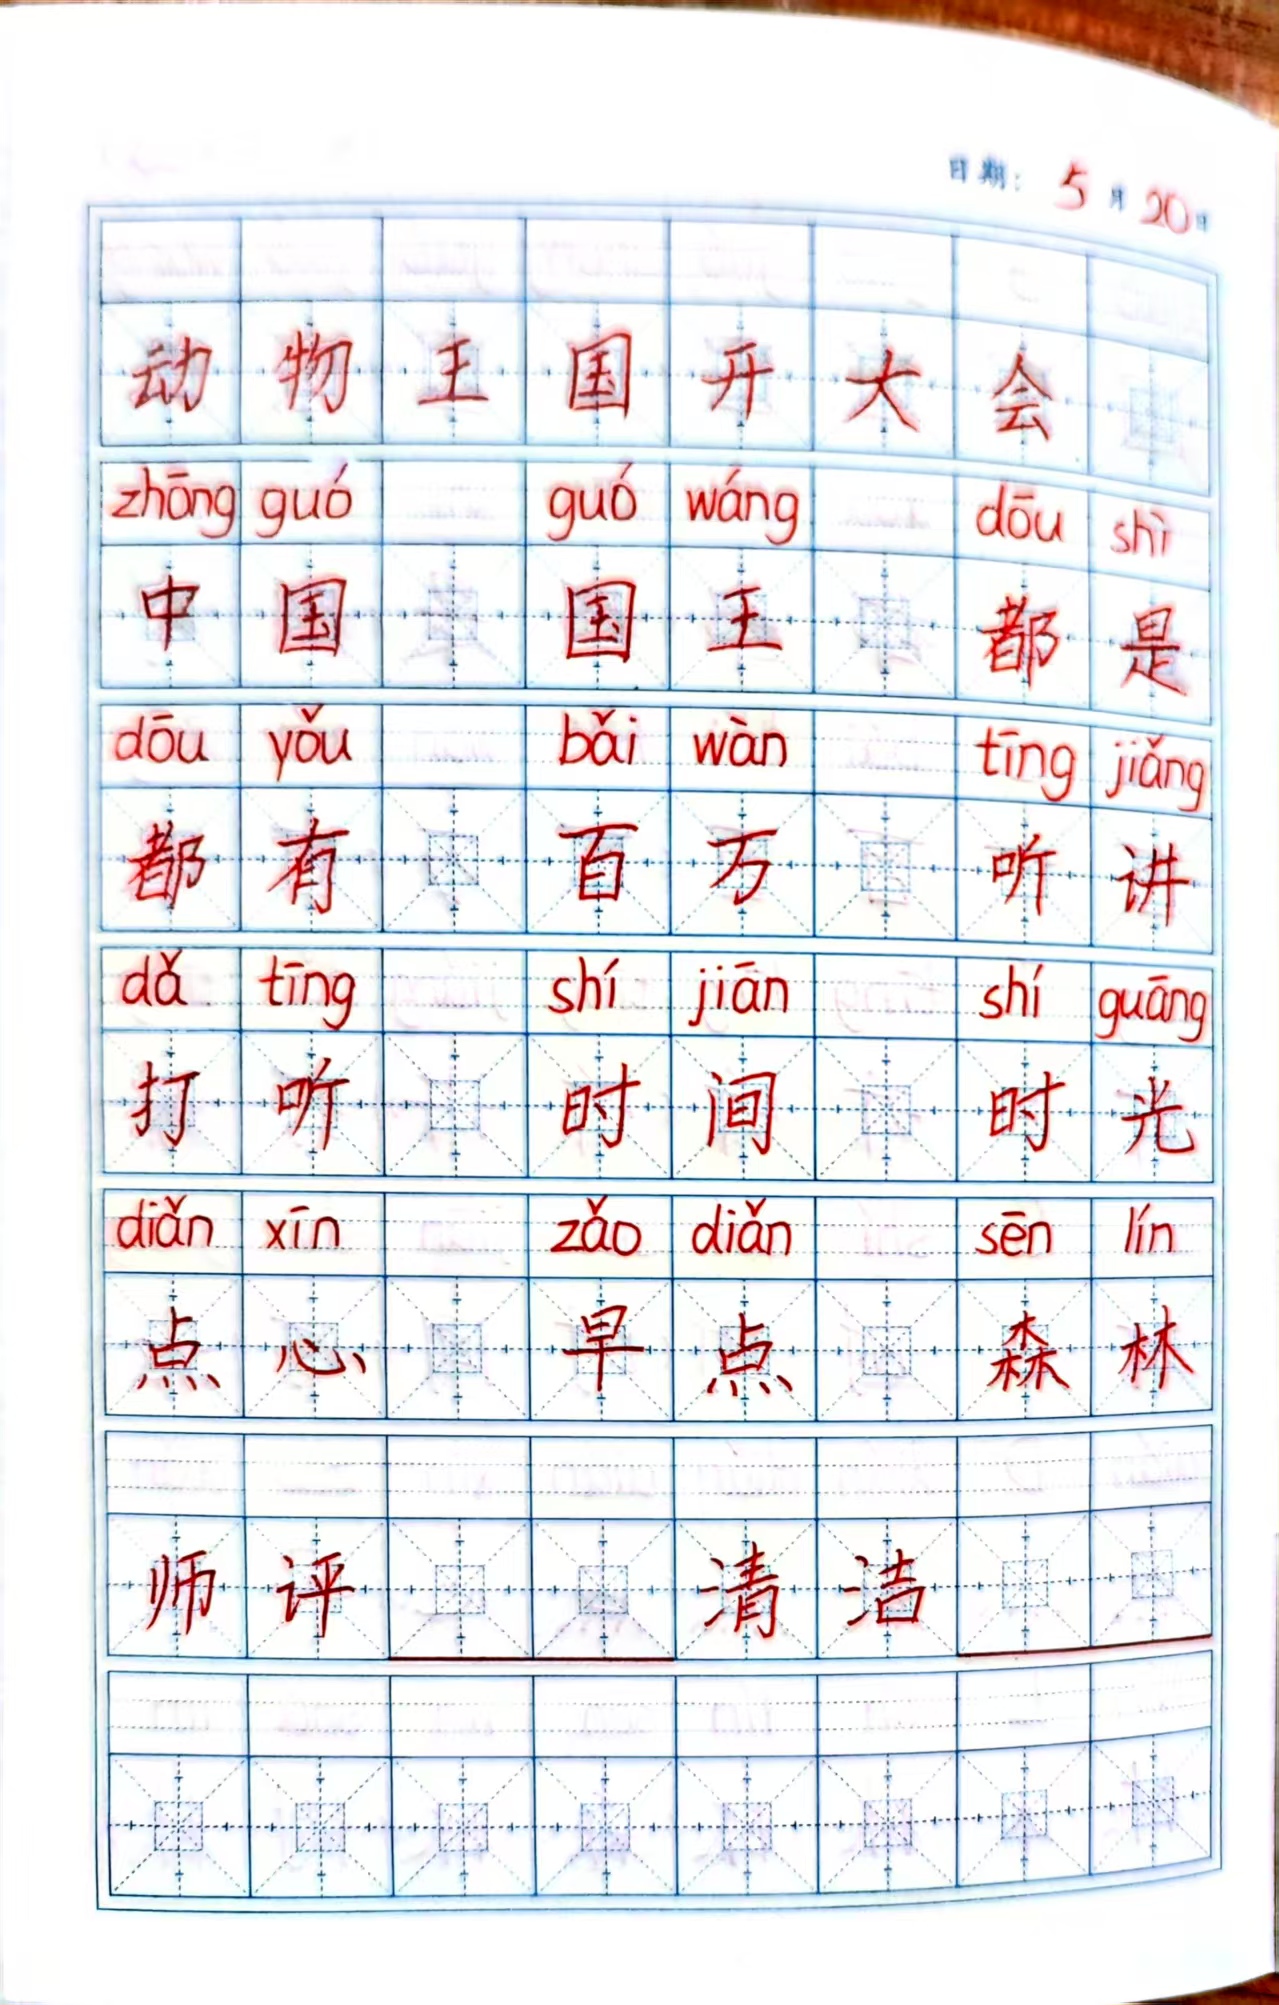 日期： 5 月 20 日
动 物 王 国 开 大 会
zhōng guó guó wáng dōu shì
中 国 国 王 都 是
dōu yǒu bǎi wàn tīng jiǎng
都 有 百 万 听 讲
dǎ tīng shí jiān shí guāng
打 听 时 间 时 光
diǎn xīn zǎo diǎn sēn lín
点 心 早 点 森 林
师 评 清 洁